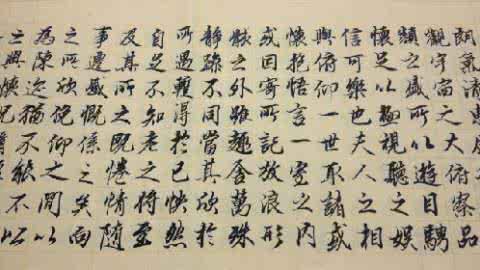 朗氣清
觀宇宙之大俯察品
類之盛所以遊目騁
懷足以極視聽之娛
信可樂也夫人之相
與俯仰一世取諸或
懷抱悟言一室之內
或因寄所託放浪形
骸之外雖趣舍萬殊
靜躁不同當其欣於
所遇暫得於己快然
自足不知老之將至
及其所之既倦情隨
事遷感慨係之矣向
之所欣俛仰之間以
為陳迹猶不能不以
之興懷況